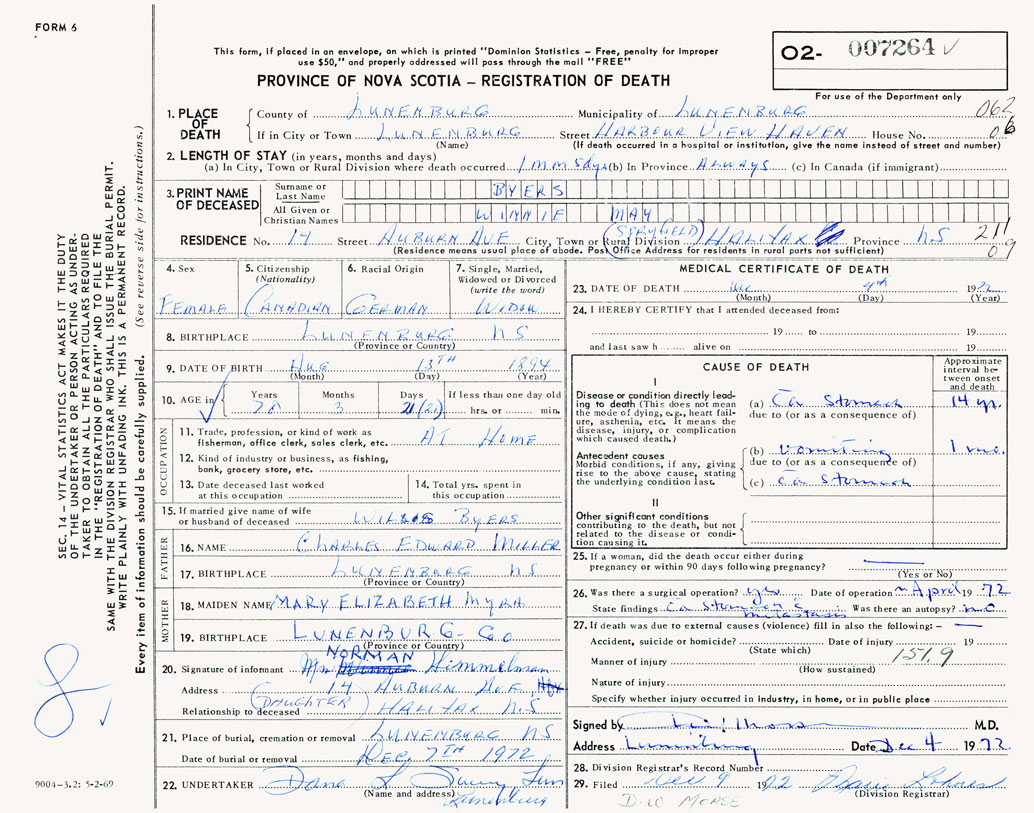 FORM 6
This form, if placed in an envelope, on which is printed "Dominion Statistics – Free, penalty for improper
use $50," and properly addressed will pass through the mail "FREE"
PROVINCE OF NOVA SCOTIA – REGISTRATION OF DEATH
O2- 007264
For use of the Department only
062
06
1. PLACE OF DEATH
County of LUNENBURG Municipality of LUNENBURG
If in City or Town LUNENBURG Street HARBOUR VIEW HAVEN House No.
(Name) (If death occurred in a hospital or institution, give the name instead of street and number)
2. LENGTH OF STAY (in years, months and days)
(a) In City, Town or Rural Division where death occurred (b) In Province ALWAYS (c) In Canada (if immigrant)
3. PRINT NAME OF DECEASED
Surname or Last Name BYERS
All Given or Christian Names WINNIE MAY
(SPRYFIELD)
RESIDENCE No. 14 Street AUBURN AVE City, Town or Rural Division HALIFAX Province N.S
(Residence means usual place of abode. Post Office Address for residents in rural parts not sufficient)
211
09
4. Sex
FEMALE
5. Citizenship
(Nationality)
CANADIAN
6. Racial Origin
GERMAN
7. Single, Married,
Widowed or Divorced
(write the word)
WIDOW
8. BIRTHPLACE LUNENBURG NS
(Province or Country)
9. DATE OF BIRTH AUG 13TH 1894
(Month) (Day) (Year)
10. AGE in Years Months Days If less than one day old
78 3 21 (21) hrs. or min.
OCCUPATION
11. Trade, profession, or kind of work as
fisherman, office clerk, sales clerk, etc. AT HOME
12. Kind of industry or business, as fishing,
bank, grocery store, etc.
13. Date deceased last worked
at this occupation
14. Total yrs. spent in
this occupation
15. If married give name of wife
or husband of deceased BYERS
FATHER
16. NAME CHARLES EDWARD MILLER
17. BIRTHPLACE LUNENBURG NS
(Province or Country)
MOTHER
18. MAIDEN NAME MARY ELIZABETH MYRA
19. BIRTHPLACE LUNENBURG - CO
(Province or Country)
NORMAN
20. Signature of informant Mrs Himmelman
Address 14 AUBURN AVE
(DAUGHTER)
Relationship to deceased HALIFAX N.S
21. Place of burial, cremation or removal LUNENBURG NS
Date of burial or removal DEC, 7TH 1972
22. UNDERTAKER Dana L Sweeny
(Name and address) Lunenburg
MEDICAL CERTIFICATE OF DEATH
23. DATE OF DEATH Dec 4th 1972
(Month) (Day) (Year)
24. I HEREBY CERTIFY that I attended deceased from:
19 to 19
and last saw h alive on 19
CAUSE OF DEATH
Approximate
interval be-
tween onset
and death
I
Disease or condition directly lead-
ing to death (This does not mean
the mode of dying, e.g., heart fail-
ure, asthenia, etc. It means the
disease, injury, or complication
which caused death.)
(a) Ca Stomach 14 yr.
due to (or as a consequence of)
Antecedent causes
Morbid conditions, if any, giving
rise to the above cause, stating
the underlying condition last.
(b) Vomiting 1 mo.
due to (or as a consequence of)
(c) Ca Stomach
II
Other significant conditions
contributing to the death, but not
related to the disease or condi-
tion causing it.
25. If a woman, did the death occur either during
pregnancy or within 90 days following pregnancy?
(Yes or No)
26. Was there a surgical operation? yes Date of operation April 1972
State findings Ca Stomach Was there an autopsy? no
27. If death was due to external causes (violence) fill in also the following: –
Accident, suicide or homicide? Date of injury 19
(State which)
151.9
Manner of injury
(How sustained)
Nature of injury
Specify whether injury occurred in industry, in home, or in public place
Signed by M.D.
Address Lunenburg Date Dec 4 1972
28. Division Registrar's Record Number
29. Filed Dec 9 1972
(Division Registrar)
D.W. MORSE
SEC. 14 – VITAL STATISTICS ACT MAKES IT THE DUTY
OF THE UNDERTAKER OR PERSON ACTING AS UNDER-
TAKER TO OBTAIN ALL THE PARTICULARS REQUIRED
IN THE "REGISTRATION OF DEATH" AND TO FILE THE
SAME WITH THE DIVISION REGISTRAR WHO SHALL ISSUE THE BURIAL PERMIT.
WRITE PLAINLY WITH UNFADING INK. THIS IS A PERMANENT RECORD.
Every item of information should be carefully supplied. (See reverse side for instructions.)
8
9004-3.2: 5-2-69